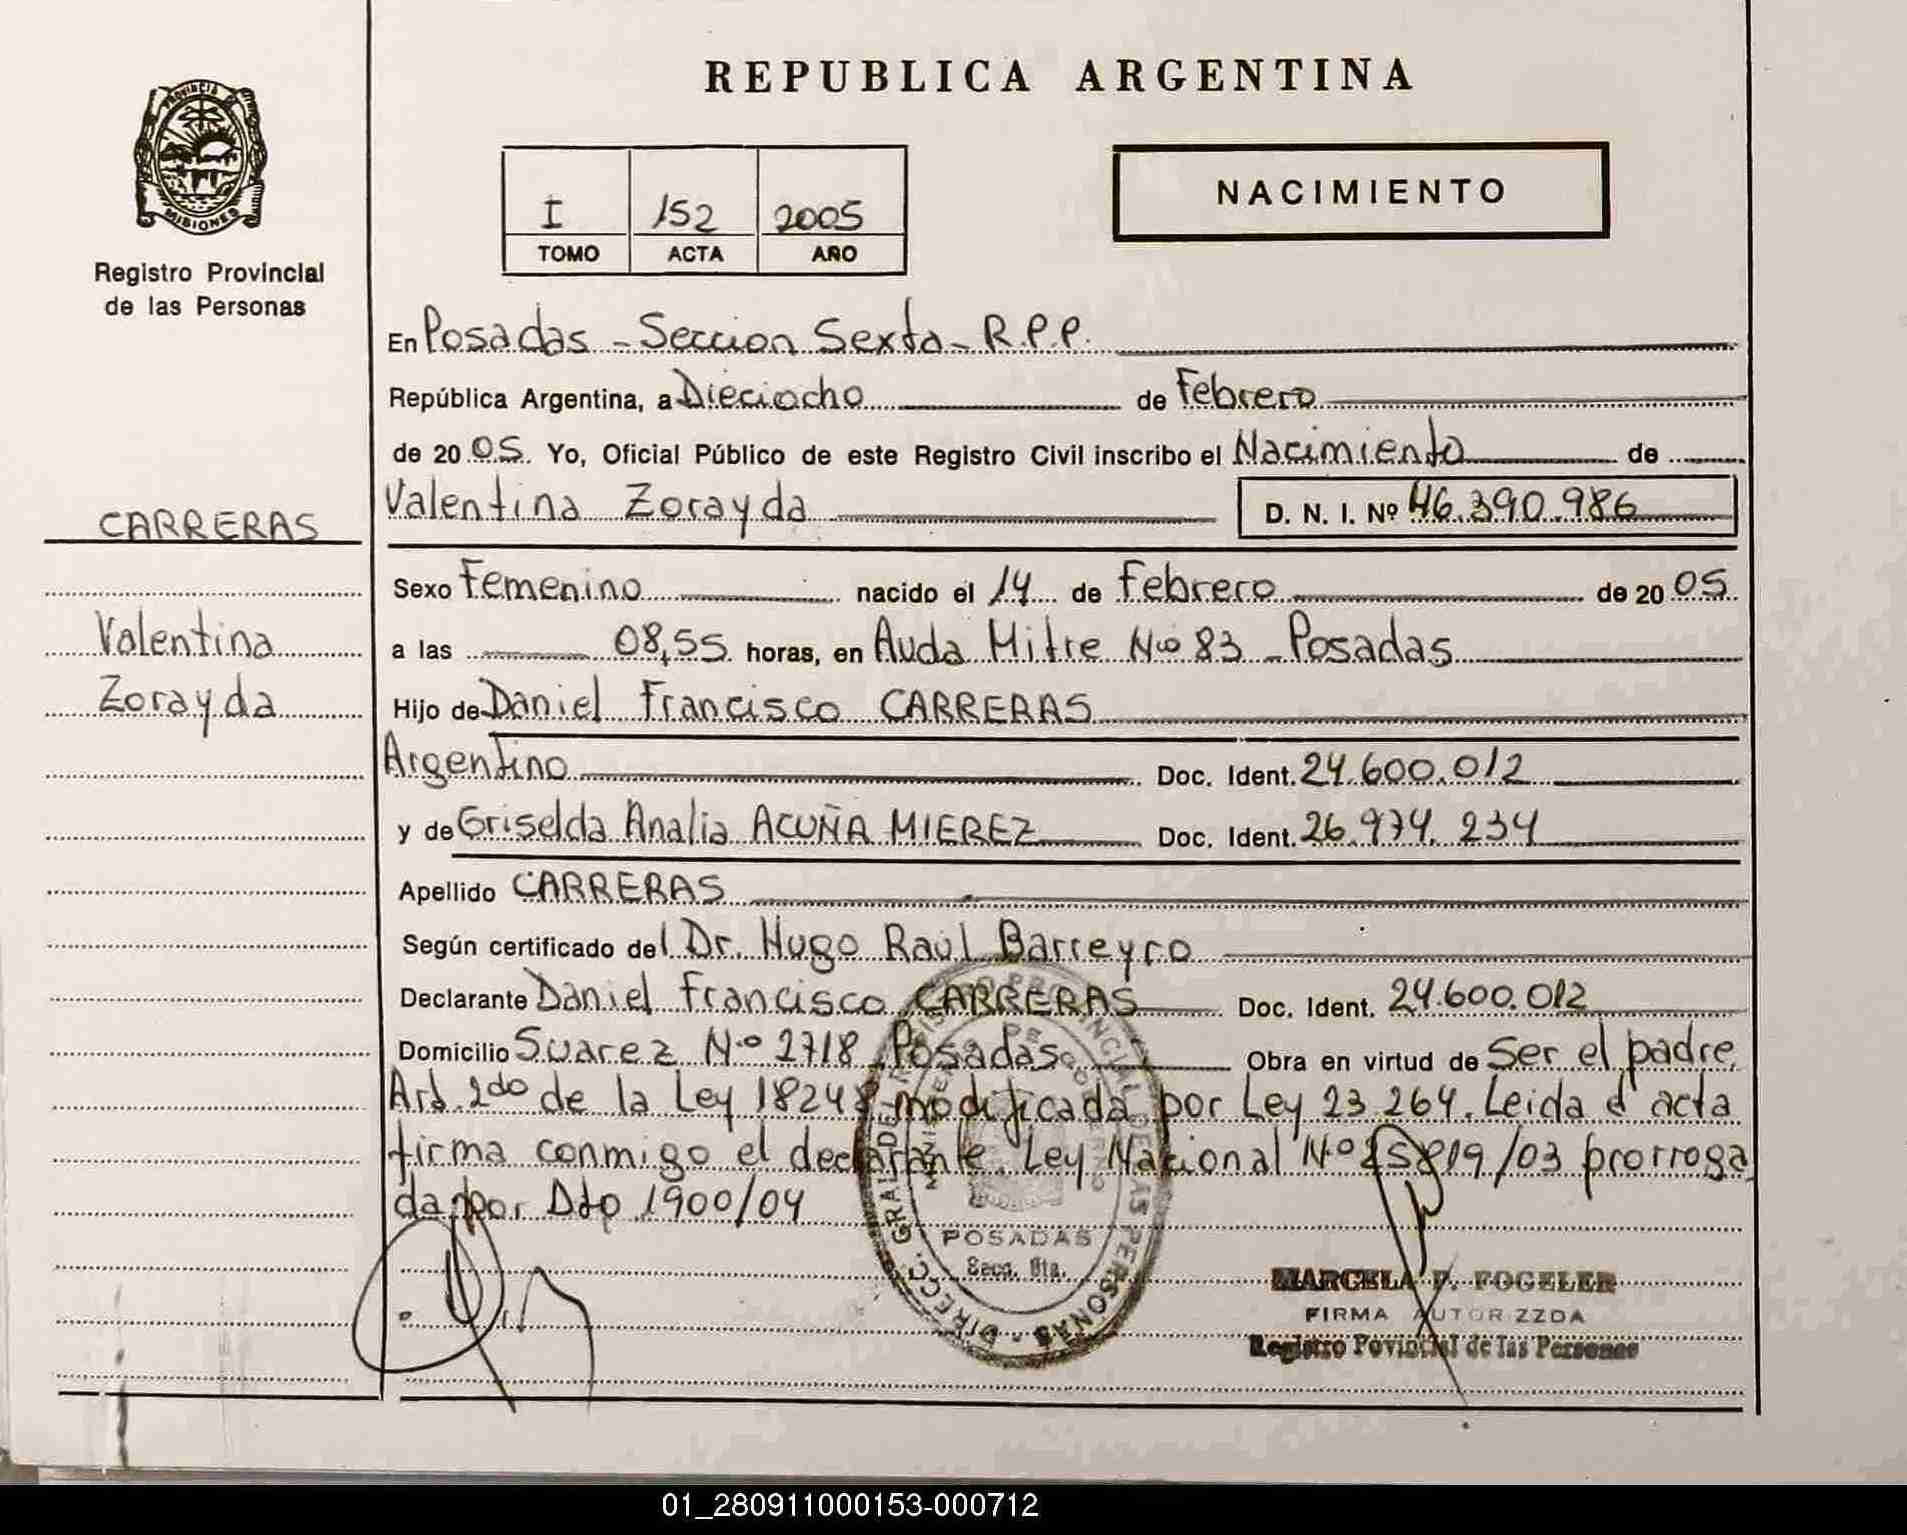 REPUBLICA ARGENTINA
PROVINCIA D MISIONES
Registro Provincial
de las Personas
I 152 2005
TOMO ACTA AÑO
NACIMIENTO
CARRERAS
Valentina
Zorayda
En Posadas - Seccion Sexta - R.P.P.
República Argentina, a Dieciocho de Febrero
de 20 05. Yo, Oficial Público de este Registro Civil inscribo el Nacimiento de
Valentina Zorayda D. N. I. Nº 46.390.986
Sexo Femenino nacido el 14 de Febrero de 20 05
a las 08,55 horas, en Avda Mitre Nº 83 - Posadas
Hijo de Daniel Francisco CARRERAS
Argentino Doc. Ident. 24.600.012
y de Griselda Analia ACUÑA MIEREZ Doc. Ident. 26.974.234
Apellido CARRERAS
Según certificado del Dr. Hugo Raul Barreyro
Declarante Daniel Francisco CARRERAS Doc. Ident. 24.600.012
Domicilio Suarez Nº 2718 Posadas Obra en virtud de Ser el padre
Art. 2do de la Ley 18248 modificada por Ley 23264. Leida el acta
firma conmigo el declarante. Ley Nacional Nº 25819/03 prorroga
da por Dto 1900/04
DIRECC. GRAL DEL REGISTRO PROVINCIAL DE LAS PERSONAS
MINISTERIO DE GOBIERNO
POSADAS
Secc. 6ta.
MARCELA F. FOGELER
FIRMA AUTORIZZDA
Registro Povincial de las Personas
01_280911000153-000712